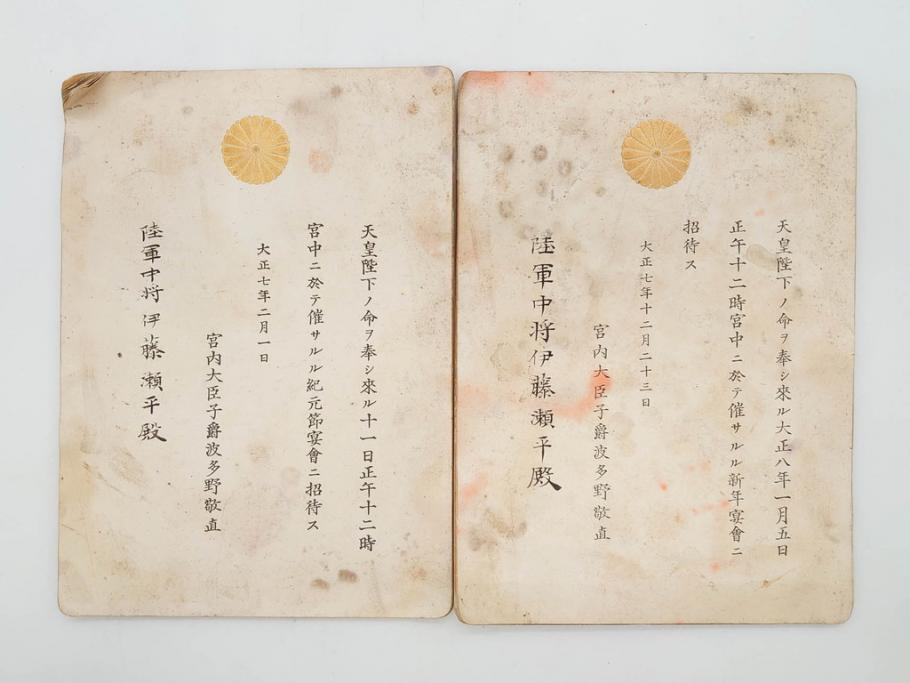 天皇陛下ノ命ヲ奉シ來ル大正八年一月五日
正午十二時宮中ニ於テ催サルル新年宴會ニ
招待ス
大正七年十二月二十三日
宮內大臣子爵波多野敬直
陸軍中将伊藤瀬平殿
天皇陛下ノ命ヲ奉シ來ル十一日正午十二時
宮中ニ於テ催サルル紀元節宴會ニ招待ス
大正七年二月一日
宮內大臣子爵波多野敬直
陸軍中将伊藤瀬平殿